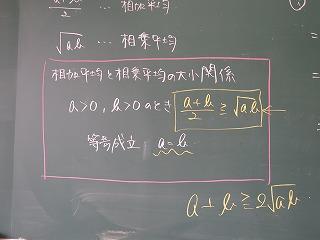 a+b/2 … 相加平均
√ab … 相乗平均
相加平均と相乗平均の大小関係
a>0, b>0のとき a+b/2 ≧ √ab ←
等号成立 a=b
a+b ≧ 2√ab